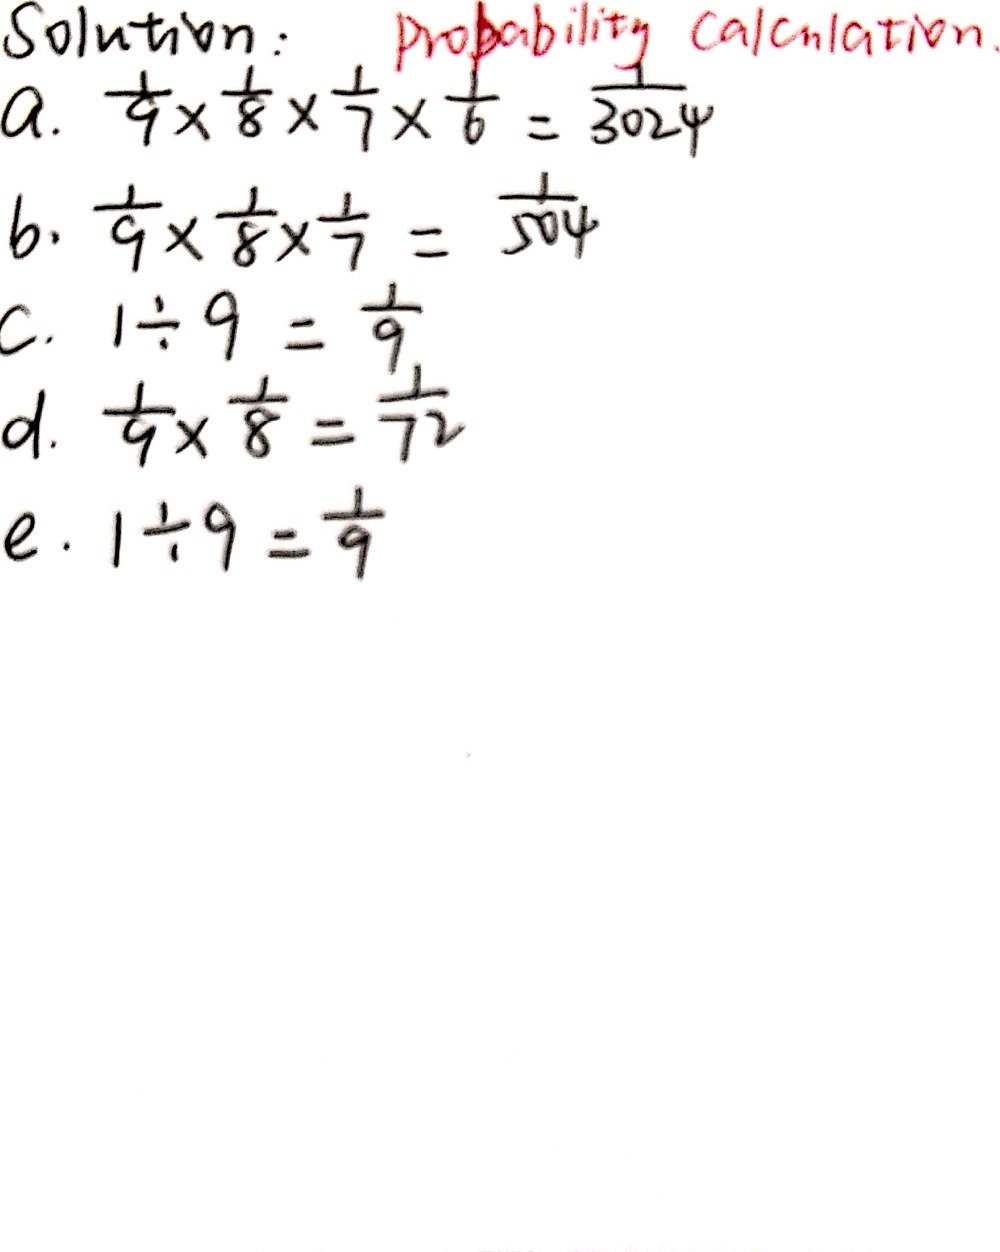 Solution: probability calculation.
a. 1/9 × 1/8 × 1/7 × 1/6 = 1/3024
b. 1/9 × 1/8 × 1/7 = 1/504
c. 1 ÷ 9 = 1/9
d. 1/9 × 1/8 = 1/72
e. 1 ÷ 9 = 1/9